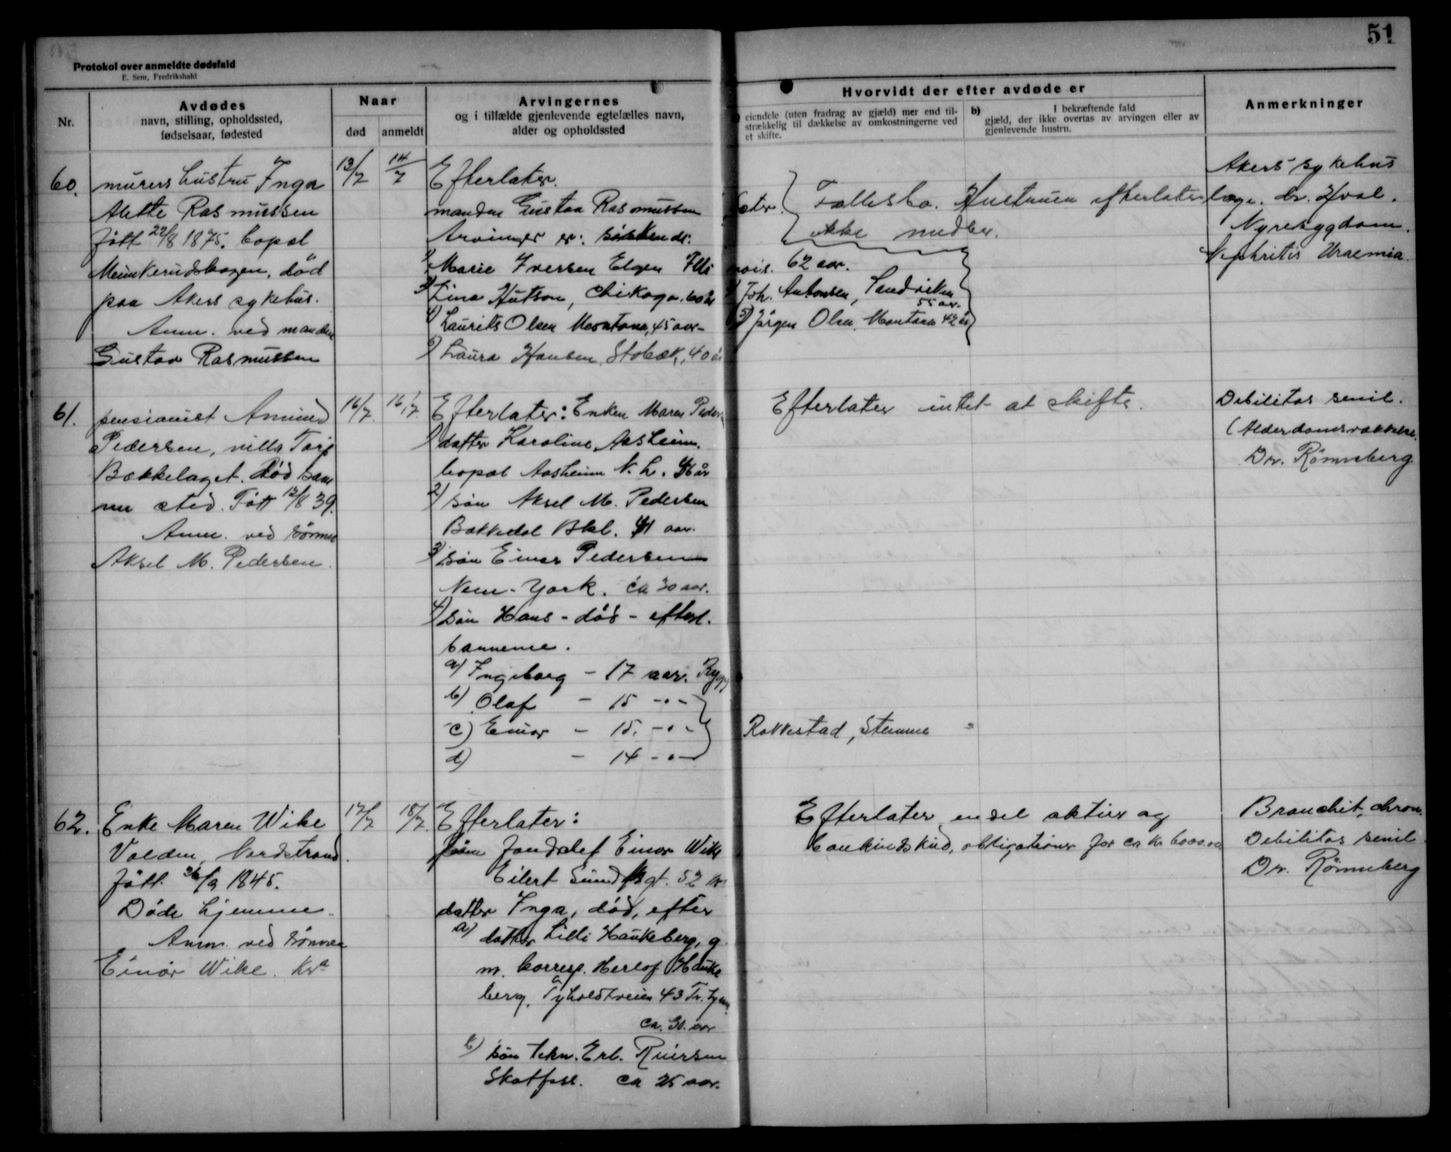 51
Protokol over anmeldte dødsfald
E. Sem, Fredrikshald
Nr.
Avdødes
navn, stilling, opholdssted,
fødselsaar, fødested
Naar
død
anmeldt
Arvingernes
og i tillælde gjenlevende egtefælles navn,
alder og opholdssted
Hvorvidt der efter avdøde er
eiendele (uten fradrag av gjæld) mer end til-
strækkelig til dækkelse av omkostningerne ved
et skifte.
b)
I bekræftende fald
gjæld, der ikke overtas av arvingen eller av
gjenlevende hustru.
Anmerkninger
60.
murers hustru Inga
Alette Rasmussen
født 22/8 1875. bopæl
Munkerudskogen, død
paa Akers sykehus.
Anm. ved manden
Gustav Rasmussen
13/7
14/7
Efterlater.
manden Gustav Rasmussen
Arvinger er: søskende:
1) Marie Iversen Elgen Illi nois. 62 aar.
3) Lina Hutson, Chikago. 60 år
4) Laurits Olsen Montana, 45 aar
Laura Hansen, 40
Joh. Antonsen, Sandviken
55 aar.
Jörgen Olsen, Montana 42 år
Fællesbo. Hustruen efterlater
ikke midler.
Akers sykehus
læge. dr. Hval.
Nyresygdom.
Nephritis Uraemia
61.
pensionist Amund
Pedersen, villa Torp
Bækkelaget. Død sam
me sted. Født 12/8 39.
Anm. ved sönnen
Aksel M. Pedersen.
16/7.
16/7
Efterlater: Enken Maren Peders
1) datter Karoline Aasheim.
bopæl Aasheim N. L. 46 år
2) sön Aksel M. Pedersen
Bækkedal Bkl. 41 aar.
3) sön Einar Pedersen
New-York. ca 30 aar.
4) sön Hans - död - efterl.
barnene.
a) Ingeborg - 17 aar. Rygg
b) Olaf - 15 -"-
c) Einar - 15. -"-
d) - 14 -"-
Rakkestad, Stemme
Efterlater intet at skifte.
Debilitas senil.
(Alderdomssvakhet.
Dr. Rönneberg
62.
Enke Maren Wike
Volden, Nordstrand.
født 26/9 1845.
Døde hjemme.
Anm. ved sönnen
Einar Wike. Kra
17/7
18/7
Efterlater:
sön Einar Wike
Eilert Sundtsgt. 52 år
datter Inga, död, efter
a) datter Lilli Haukeberg, g.
m. korresp. Herlof Hauke
berg, Tyholdtveien 43 Tr.hjem
ca. 31. aar
b) sön tekn. Erl. Ruersen
Skotfoss. ca 25 aar.
Efterlater en del aktier og
bankindskud, obligationer for ca kr 6000.00
Bronchit, chron.
Debilitas senil
Dr. Rönneberg